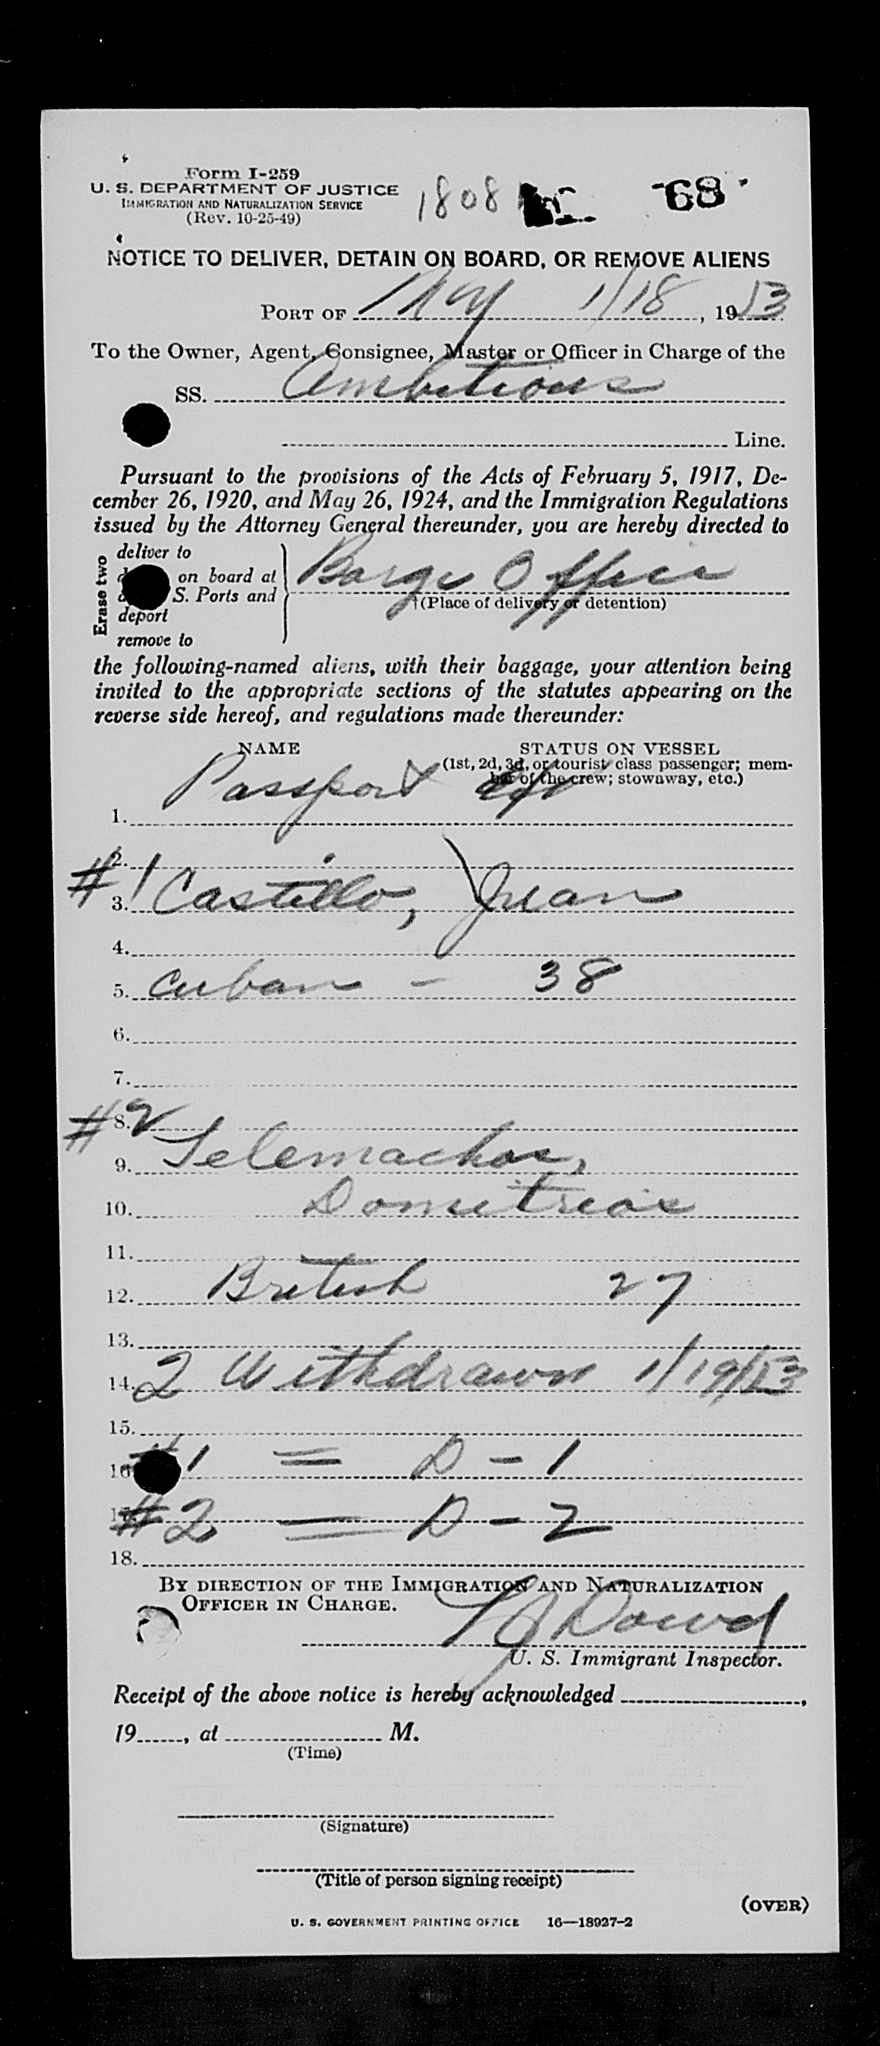 Form I-259
U. S. DEPARTMENT OF JUSTICE
IMMIGRATION AND NATURALIZATION SERVICE
(Rev. 10-25-49)
1808
68
NOTICE TO DELIVER, DETAIN ON BOARD, OR REMOVE ALIENS
PORT OF NY 1/18, 1953
To the Owner, Agent, Consignee, Master or Officer in Charge of the
SS. Ambitious
Line.
Pursuant to the provisions of the Acts of February 5, 1917, De-
cember 26, 1920, and May 26, 1924, and the Immigration Regulations
issued by the Attorney General thereunder, you are hereby directed to
Erase two
deliver to
on board at
S. Ports and
deport
remove to
Barge Office
†(Place of delivery or detention)
the following-named aliens, with their baggage, your attention being
invited to the appropriate sections of the statutes appearing on the
reverse side hereof, and regulations made thereunder:
NAME STATUS ON VESSEL
(1st, 2d, 3d, or tourist class passenger; mem-
ber of the crew; stowaway, etc.)
1. Passport
2.
#1
3. Castillo, Juan
4.
5. Cuban - 38
6.
7.
#2
8.
9. Telemachos,
10. Domitrios
11.
12. British 27
13.
14. 2 Withdrawn 1/19/53
15.
16. #1 = D-1
17. #2 = D-2
18.
BY DIRECTION OF THE IMMIGRATION AND NATURALIZATION
OFFICER IN CHARGE.
Dowd
U. S. Immigrant Inspector.
Receipt of the above notice is hereby acknowledged ,
19 , at M.
(Time)
(Signature)
(Title of person signing receipt)
(OVER)
U. S. GOVERNMENT PRINTING OFFICE 16—18927-2